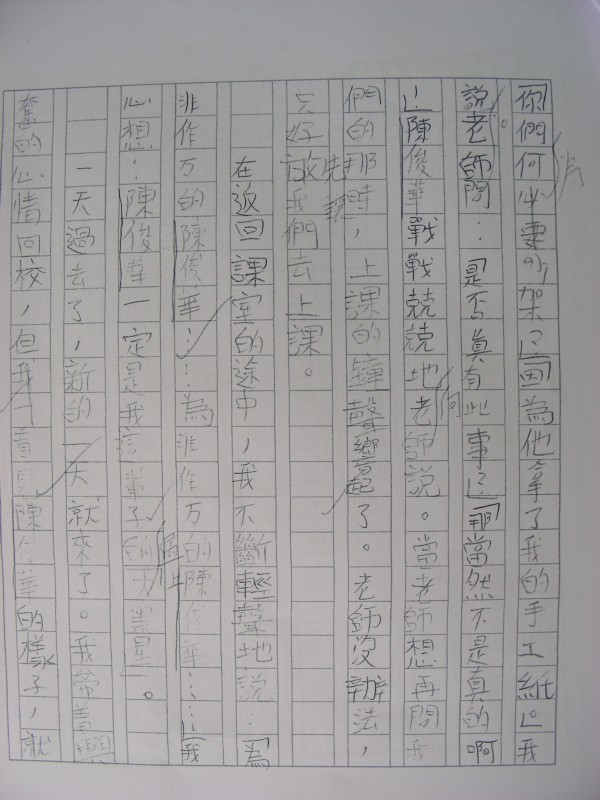 你們何必要吵架？」「因為他拿了我的手工紙」。我
說。老師問：「是否真有此事？」「那當然不是真的啊
！」陳俊華戰戰兢兢地向老師說。當老師想再問我
們的那時，上課的鐘聲響起了。老師沒辦法，
只好先讓我們去上課。
在返回課室的途中，我不斷輕聲地說：「為
非作万的陳俊華…！為非作万的陳俊華……」我
心想：「陳俊華一定是我這輩子遇上的大黑星」。
一天過去了，新的一天就來了。我帶着
奮的心情回校，但我一看見陳俊華的樣子，就